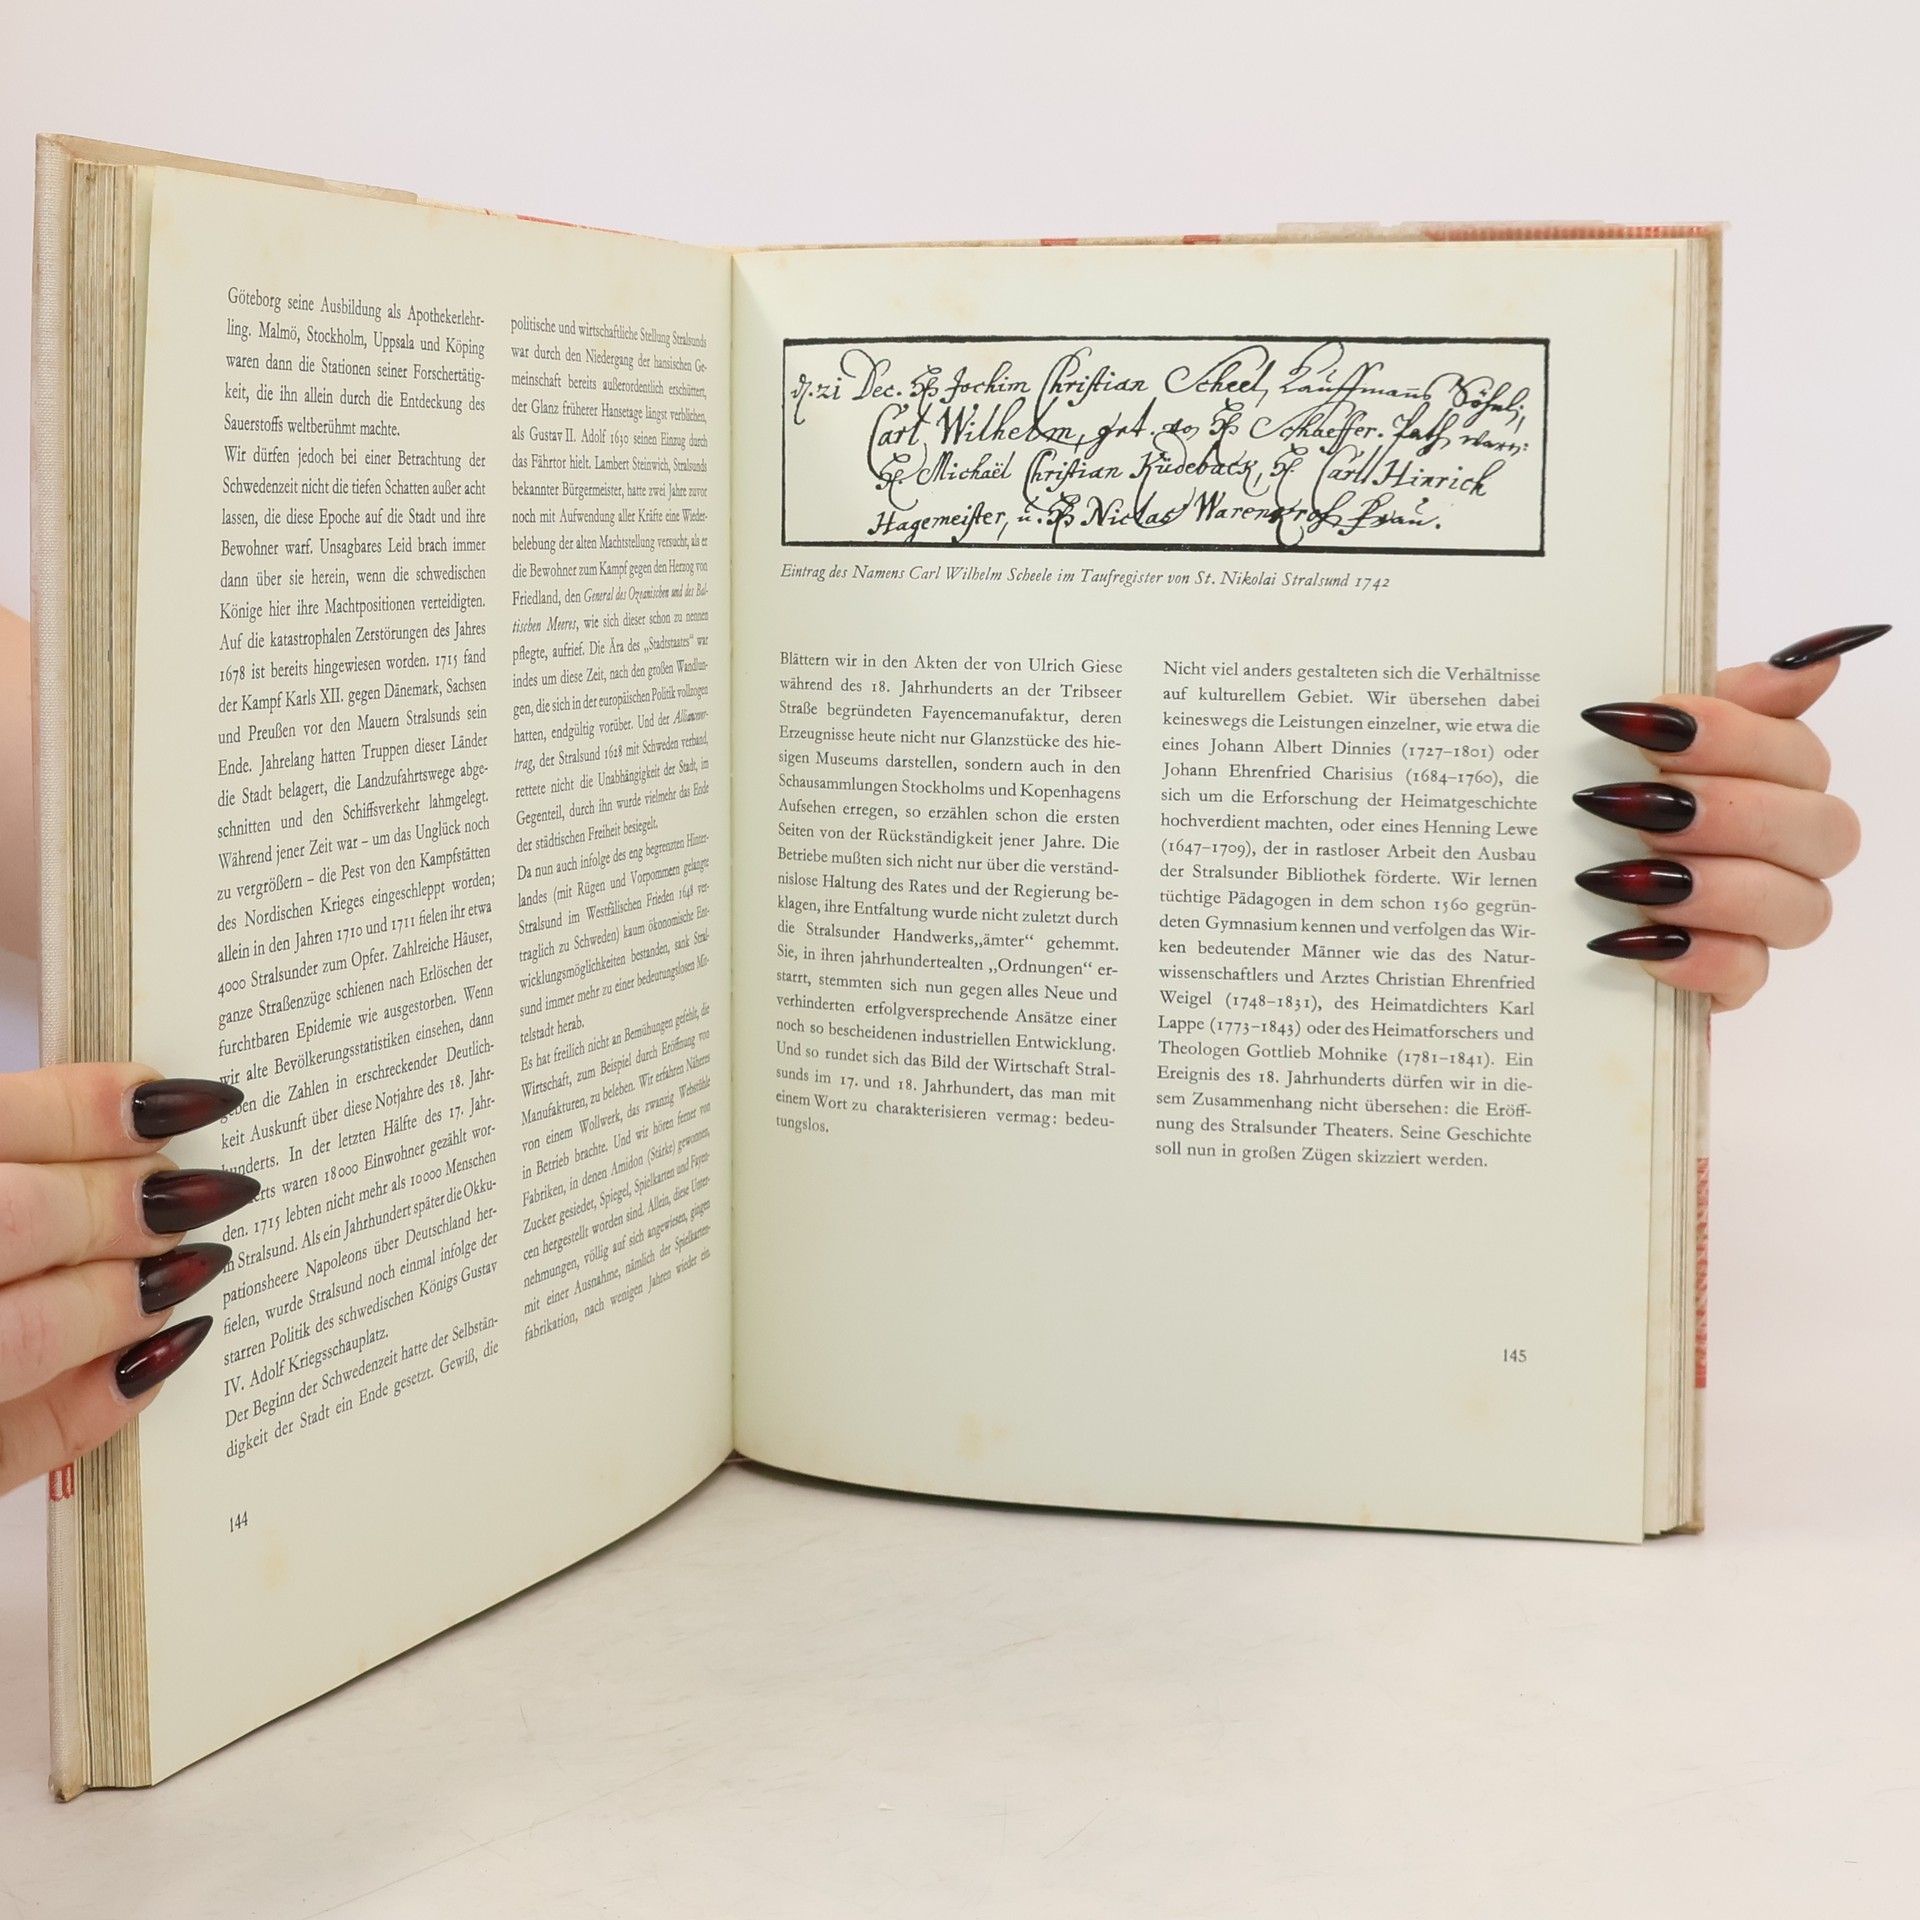 Göteborg seine Ausbildung als Apothekerlehr-
ling. Malmö, Stockholm, Uppsala und Köping
waren dann die Stationen seiner Forschertätig-
keit, die ihn allein durch die Entdeckung des
Sauerstoffs weltberühmt machte.
Wir dürfen jedoch bei einer Betrachtung der
Schwedenzeit nicht die tiefen Schatten außer acht
lassen, die diese Epoche auf die Stadt und ihre
Bewohner warf. Unsagbares Leid brach immer
dann über sie herein, wenn die schwedischen
Könige hier ihre Machtpositionen verteidigten.
Auf die katastrophalen Zerstörungen des Jahres
1678 ist bereits hingewiesen worden. 1715 fand
der Kampf Karls XII. gegen Dänemark, Sachsen
und Preußen vor den Mauern Stralsunds sein
Ende. Jahrelang hatten Truppen dieser Länder
die Stadt belagert, die Landzufahrtswege abge-
schnitten und den Schiffsverkehr lahmgelegt.
Während jener Zeit war – um das Unglück noch
zu vergrößern – die Pest von den Kampfstätten
des Nordischen Krieges eingeschleppt worden;
allein in den Jahren 1710 und 1711 fielen ihr etwa
4000 Stralsunder zum Opfer. Zahlreiche Häuser,
ganze Straßenzüge schienen nach Erlöschen der
furchtbaren Epidemie wie ausgestorben. Wenn
wir alte Bevölkerungsstatistiken einsehen, dann
geben die Zahlen in erschreckender Deutlich-
keit Auskunft über diese Notjahre des 18. Jahr-
hunderts. In der letzten Hälfte des 17. Jahr-
waren 18000 Einwohner gezählt wor-
den. 1715 lebten nicht mehr als 10000 Menschen
in Stralsund. Als ein Jahrhundert später die Okku-
pationsheere Napoleons über Deutschland her-
fielen, wurde Stralsund noch einmal infolge der
starren Politik des schwedischen Königs Gustav
IV. Adolf Kriegsschauplatz.
Der Beginn der Schwedenzeit hatte der Selbstän-
digkeit der Stadt ein Ende gesetzt. Gewiß, die
144
politische und wirtschaftliche Stellung Stralsunds
war durch den Niedergang der hansischen Ge-
meinschaft bereits außerordentlich erschüttert,
der Glanz früherer Hansetage längst verblichen,
als Gustav II. Adolf 1630 seinen Einzug durch
das Fährtor hielt. Lambert Steinwich, Stralsunds
bekannter Bürgermeister, hatte zwei Jahre zuvor
noch mit Aufwendung aller Kräfte eine Wieder-
belebung der alten Machtstellung versucht, als er
die Bewohner zum Kampf gegen den Herzog von
Friedland, den General des Ozeanischen und des Bal-
tischen Meeres, wie sich dieser schon zu nennen
pflegte, aufrief. Die Ära des „Stadtstaates“ war
indes um diese Zeit, nach den großen Wandlun-
gen, die sich in der europäischen Politik vollzogen
hatten, endgültig vorüber. Und der Alliancever-
trag, der Stralsund 1628 mit Schweden verband,
rettete nicht die Unabhängigkeit der Stadt, im
Gegenteil, durch ihn wurde vielmehr das Ende
der städtischen Freiheit besiegelt.
Da nun auch infolge des eng begrenzten Hinter-
landes (mit Rügen und Vorpommern gelangte
Stralsund im Westfälischen Frieden 1648 ver-
traglich zu Schweden) kaum ökonomische Ent-
wicklungsmöglichkeiten bestanden, sank Stral-
sund immer mehr zu einer bedeutungslosen Mit-
telstadt herab.
Es hat freilich nicht an Bemühungen gefehlt, die
Wirtschaft, zum Beispiel durch Eröffnung von
Manufakturen, zu beleben. Wir erfahren Näheres
von einem Wollwerk, das zwanzig Webstühle
in Betrieb brachte. Und wir hören ferner von
Fabriken, in denen Amidon (Stärke) gewonnen,
Zucker gesiedet, Spiegel, Spielkarten und Fayen-
cen hergestellt worden sind. Allein, diese Unter-
nehmungen, völlig auf sich angewiesen, gingen
mit einer Ausnahme, nämlich der Spielkarten-
fabrikation, nach wenigen Jahren wieder ein.
21 Dec. Jochim Christian Scheel, Kauffmans Söhnl;
Carl Wilhelm, Schaeffer. Path waren:
Michaël Christian Küdeback, Carl Hinrich
Hagemeister, u. Niclas Warenkross Frau.
Eintrag des Namens Carl Wilhelm Scheele im Taufregister von St. Nikolai Stralsund 1742
Blättern wir in den Akten der von Ulrich Giese
während des 18. Jahrhunderts an der Tribseer
Straße begründeten Fayencemanufaktur, deren
Erzeugnisse heute nicht nur Glanzstücke des hie-
sigen Museums darstellen, sondern auch in den
Schausammlungen Stockholms und Kopenhagens
Aufsehen erregen, so erzählen schon die ersten
Seiten von der Rückständigkeit jener Jahre. Die
Betriebe mußten sich nicht nur über die verständ-
nislose Haltung des Rates und der Regierung be-
klagen, ihre Entfaltung wurde nicht zuletzt durch
die Stralsunder Handwerks„ämter“ gehemmt.
Sie, in ihren jahrhundertealten „Ordnungen“ er-
starrt, stemmten sich nun gegen alles Neue und
verhinderten erfolgversprechende Ansätze einer
noch so bescheidenen industriellen Entwicklung.
Und so rundet sich das Bild der Wirtschaft Stral-
sunds im 17. und 18. Jahrhundert, das man mit
einem Wort zu charakterisieren vermag: bedeu-
tungslos.
Nicht viel anders gestalteten sich die Verhältnisse
auf kulturellem Gebiet. Wir übersehen dabei
keineswegs die Leistungen einzelner, wie etwa die
eines Johann Albert Dinnies (1727–1801) oder
Johann Ehrenfried Charisius (1684–1760), die
sich um die Erforschung der Heimatgeschichte
hochverdient machten, oder eines Henning Lewe
(1647–1709), der in rastloser Arbeit den Ausbau
der Stralsunder Bibliothek förderte. Wir lernen
tüchtige Pädagogen in dem schon 1560 gegrün-
deten Gymnasium kennen und verfolgen das Wir-
ken bedeutender Männer wie das des Natur-
wissenschaftlers und Arztes Christian Ehrenfried
Weigel (1748–1831), des Heimatdichters Karl
Lappe (1773–1843) oder des Heimatforschers und
Theologen Gottlieb Mohnike (1781–1841). Ein
Ereignis des 18. Jahrhunderts dürfen wir in die-
sem Zusammenhang nicht übersehen: die Eröff-
nung des Stralsunder Theaters. Seine Geschichte
soll nun in großen Zügen skizziert werden.
145